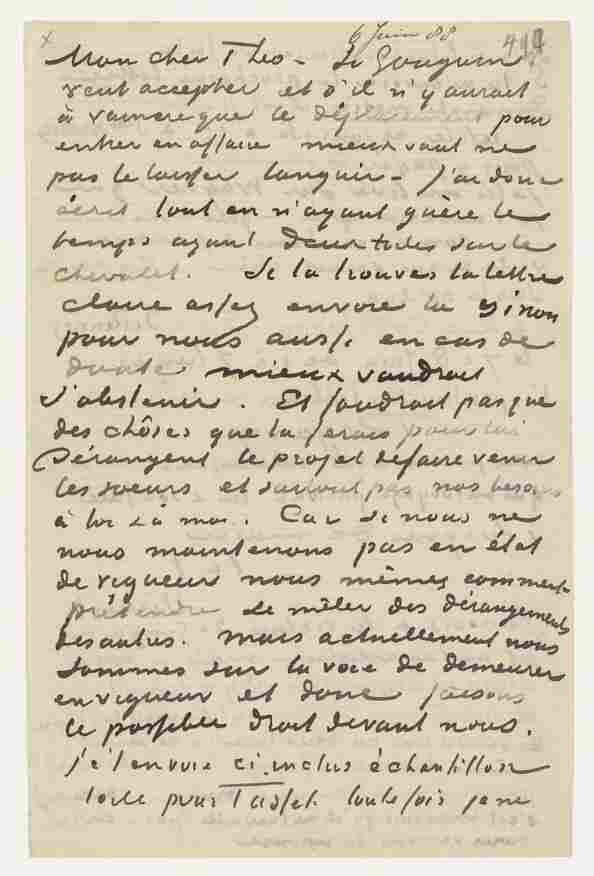 6 Juin 88
Mon cher Theo – Si Gauguin
veut accepter et s'il n'y aurait
à vaincre que le déplacement pour
entrer en affaire mieux vaut ne
pas le laisser languir – J'ai donc
écrit tout en n'ayant guère le
temps ayant deux toiles sur le
chevalet. Si tu trouves la lettre
claire assez envoie la sinon
pour nous aussi en cas de
doute mieux vaudrait
s'abstenir. Et faudrait pas que
des chôses que tu ferais pour lui
dérangent le projet de faire venir
les soeurs et surtout pas nos besoins
à toi & à moi. Car si nous ne
nous maintenons pas en état
de vigueur nous mêmes comment
prétendre se mêler des dérangements
des autres. Mais actuellement nous
sommes sur la voie de demeurer
en vigueur et donc faisons
le possible droit devant nous.
Je t'envoie ci inclus échantillon
toile pour Tasset toutefois je ne